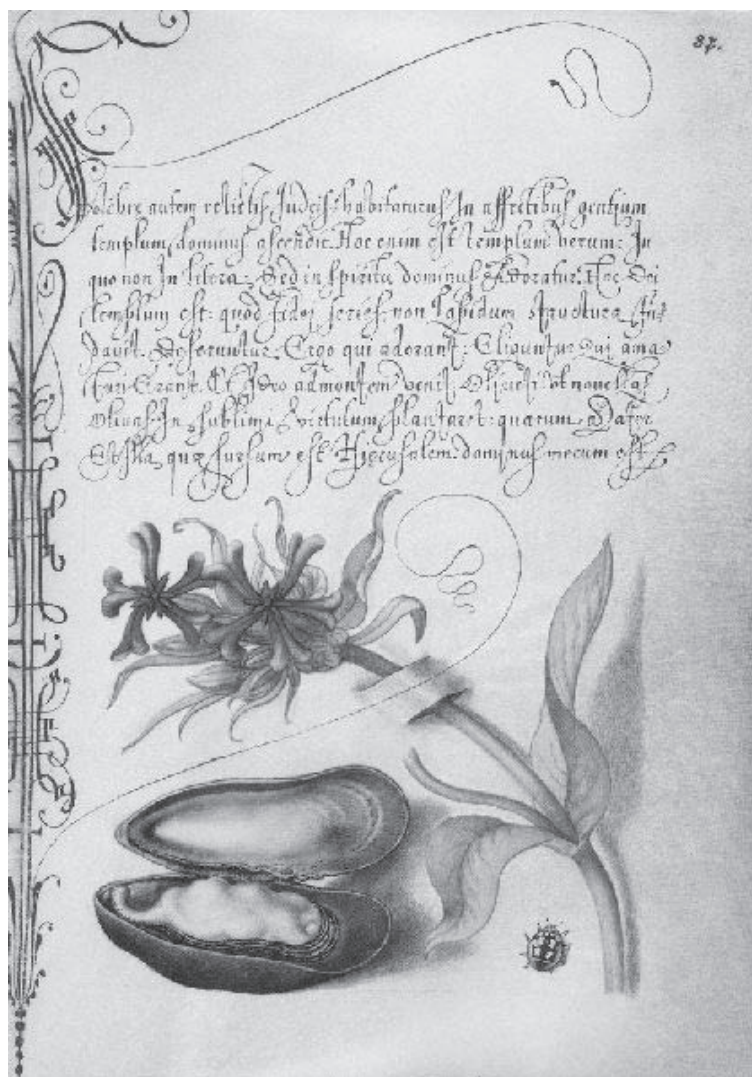 87.
Pulchre autem relictis Judeis habitaturus In affectibus gentium
templum dominus ascendit. Hoc enim est templum verum: In
quo non In litera: Sed in spiritu dominus Adoratur. Hoc Dei
templum est: quod fidei series non lapidum structura fun:
davit. Deseruntur Ergo qui oderant: Eliguntur qui ama:
turi Erant. Et Ideo ad montem venit Oliveti: Vt novellas
Olivas In sublimi virtutum plantaret: quarum Mater
Est illa quæ sursum est Hierusalem: dominus mecum est.